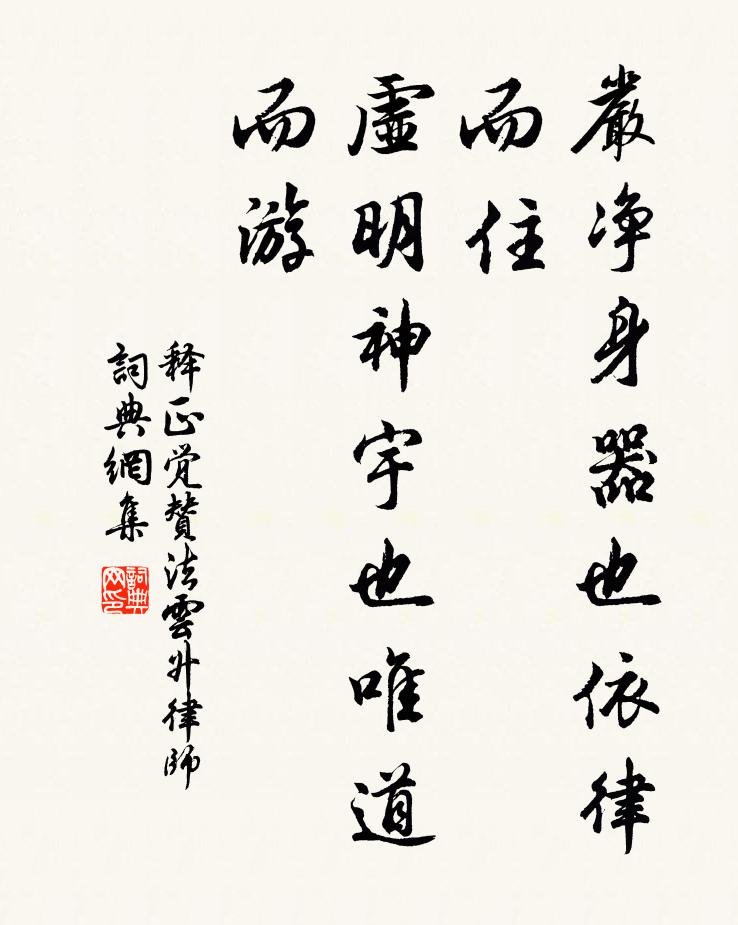 嚴净身器也依律
而住
虛明神宇也唯道
而游
释正觉贊法雲外律師
詞典網集
詞典
网印